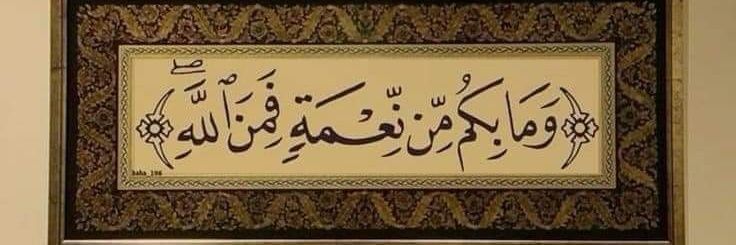 ﴿وَمَا بِكُم مِّن نِّعْمَةٍ فَمِنَ ٱللَّهِ ۖ﴾
baha_198